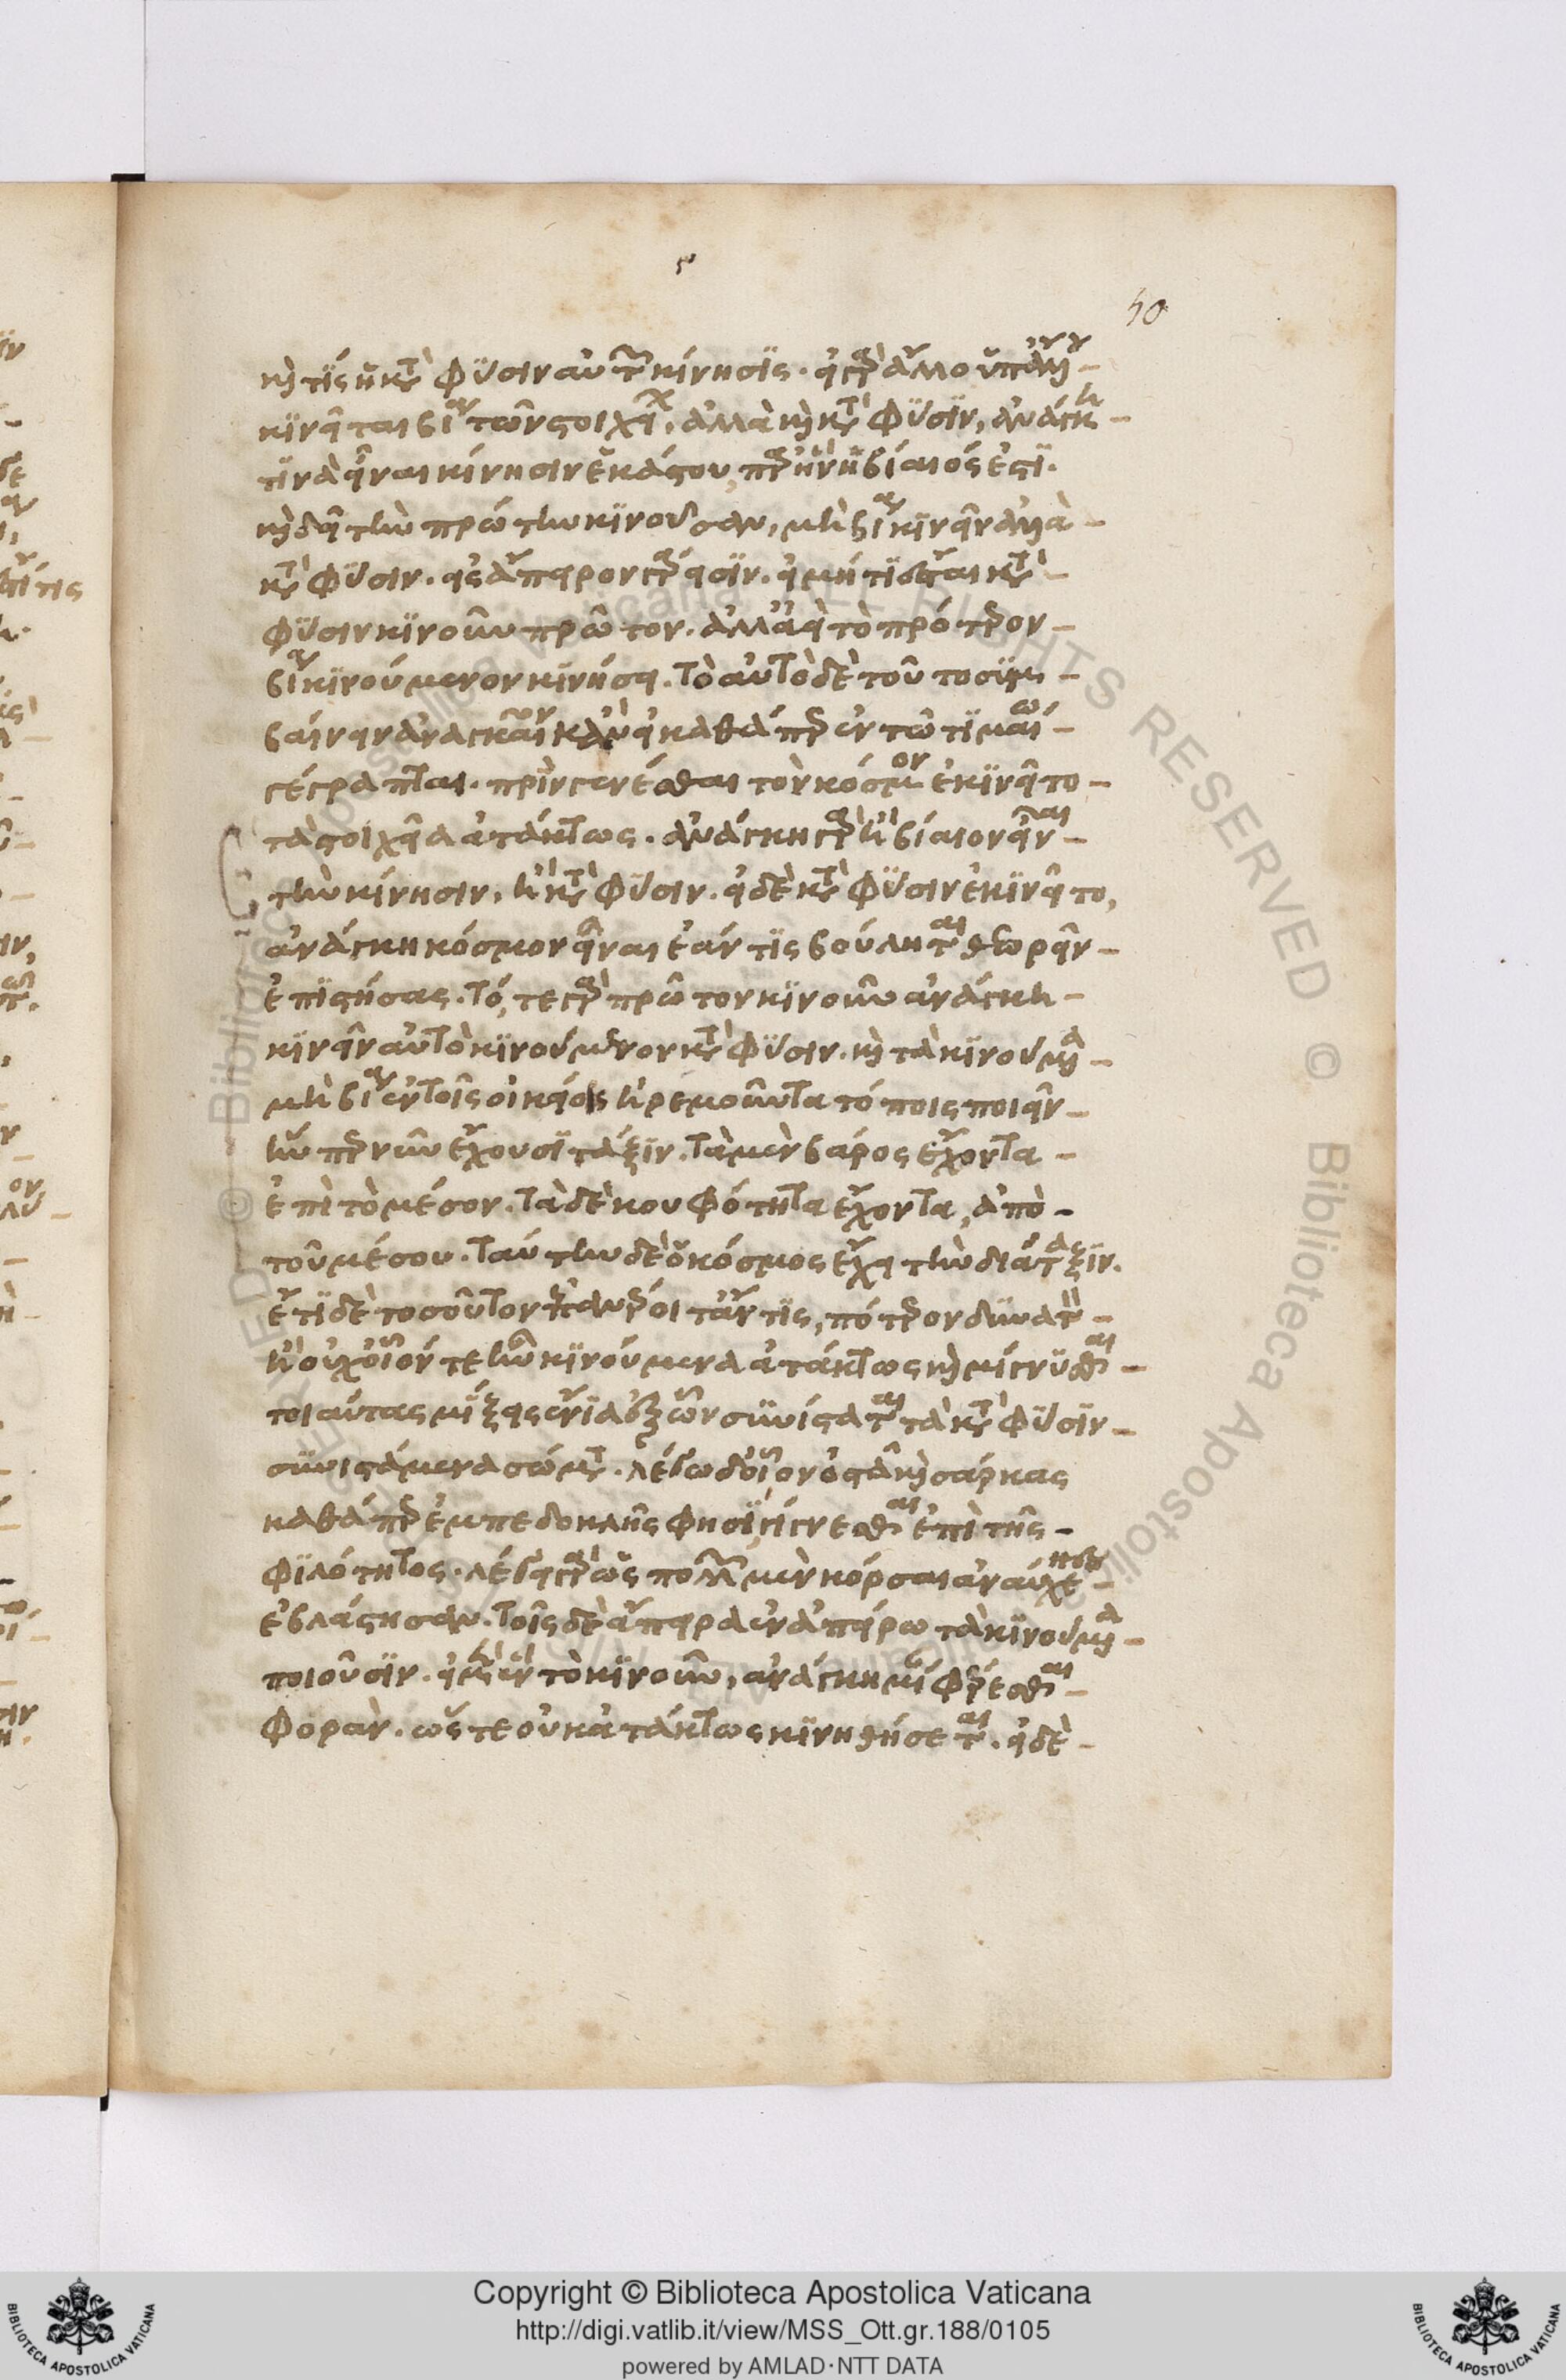 καὶ τίς ἡ κατὰ φύσιν αὐτῶν κίνησις. εἰ γὰρ ἄλλο ὑπ' ἄλλου
κινεῖται βίᾳ τῶν στοιχείων, ἀλλὰ καὶ κατὰ φύσιν, ἀνάγκη
τινὰ εἶναι κίνησιν ἑκάστου, παρ' ἣν ἡ βίαιός ἐστι.
καὶ δεῖ τὴν πρώτην κινοῦσαν, μὴ βίᾳ κινεῖν ἀλλὰ
κατὰ φύσιν. εἰς ἄπειρον γὰρ εἶσιν. εἰ μή τι ἔσται κατὰ
φύσιν κινοῦν πρῶτον. ἀλλ' ἀεὶ τὸ πρότερον
βίᾳ κινούμενον κινήσει. τὸ αὐτὸ δὲ τοῦτο συμ
βαίνειν ἀναγκαῖον κἂν εἰ καθάπερ ἐν τῷ τιμαίῳ
γέγραπται. πρὶν γενέσθαι τὸν κόσμον ἐκινεῖτο
τὰ στοιχεῖα ἀτάκτως. ἀνάγκη γὰρ ἢ βίαιον εἶναι
τὴν κίνησιν, ἢ κατὰ φύσιν. εἰ δὲ κατὰ φύσιν ἐκινεῖτο,
ἀνάγκη κόσμον εἶναι ἐάν τις βούληται θεωρεῖν
ἐπιστήσας. τό, τε γὰρ πρῶτον κινοῦν ἀνάγκη
κινεῖν αὐτὸ κινούμενον κατὰ φύσιν. καὶ τὰ κινούμενα
μὴ βίᾳ ἐν τοῖς οἰκείοις ἠρεμοῦντα τόποις ποιεῖν
ἥνπερ νῦν ἔχουσι τάξιν. τὰ μὲν βάρος ἔχοντα
ἐπὶ τὸ μέσον. τὰ δὲ κουφότητα ἔχοντα, ἀπὸ
τοῦ μέσου. ταύτην δὲ ὁ κόσμος ἔχει τὴν διάταξιν.
ἔτι δὲ τοσοῦτον ἐπανέροιτ' ἄν τις, πότερον δυνατὸν
ἢ οὐχ οἷόν τε ἦν κινούμενα ἀτάκτως καὶ μίγνυσθαι
τοιαύτας μίξεις ἔνια ἐξ ὧν συνίσταται τὰ κατὰ φύσιν
συνιστάμενα σώματα. λέγω δ' οἷον ὀστᾶ καὶ σάρκας
καθάπερ ἐμπεδοκλῆς φησὶ γίγνεσθαι ἐπὶ τῆς
φιλότητος. λέγει γὰρ ὡς πολλῶν μὲν κόρσαι ἀναύχενες
ἐβλάστησαν. τοῖς δὲ ἄπειρα ἐν ἀπείρῳ τὰ κινούμενα
ποιοῦσιν. εἰ μὲν ἓν τὸ κινοῦν, ἀνάγκη μίαν φέρεσθαι
φοράν. ὥστε οὐκ ἀτάκτως κινηθήσεται. εἰ δὲ
Copyright © Biblioteca Apostolica Vaticana
http://digi.vatlib.it/view/MSS_Ott.gr.188/0105
powered by AMLAD·NTT DATA